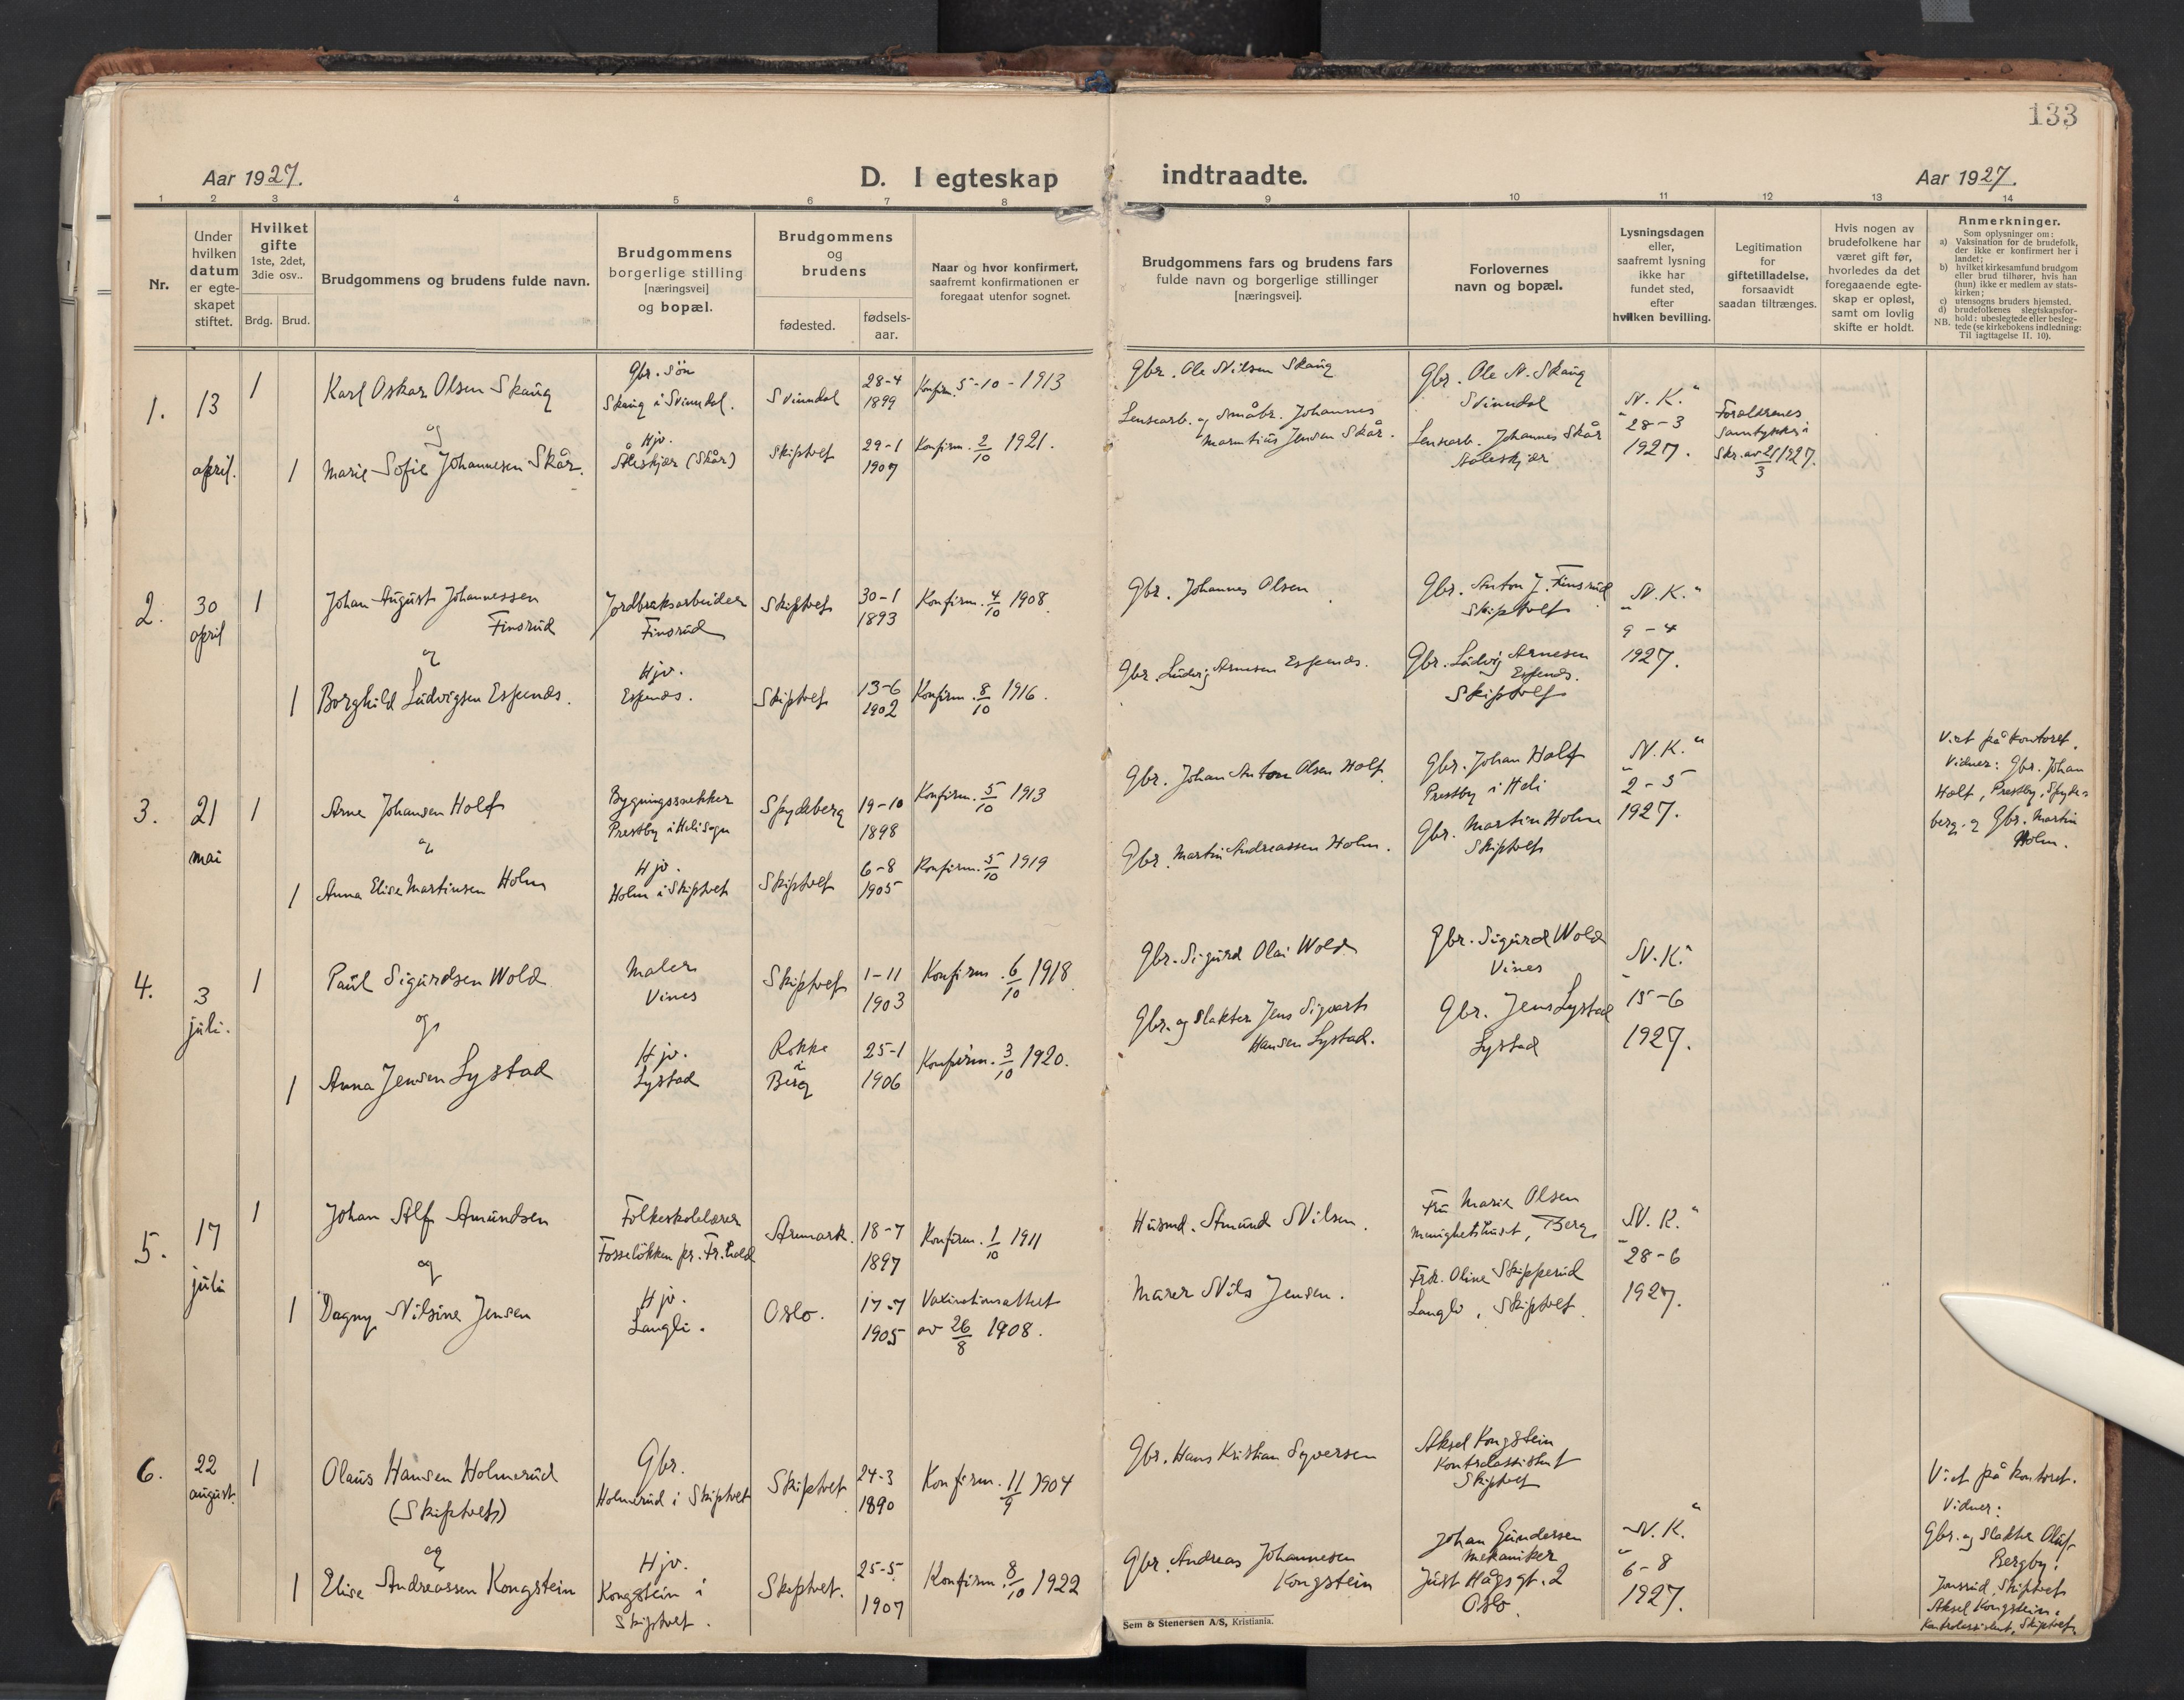 133
Aar 1927.
D. I egteskap indtraadte.
Aar 1927.
1 2 3 4 5 6 7 8 9 10 11 12 13 14
Nr.
Under
hvilken
datum
er egte-
skapet
stiftet.
Hvilket
gifte
1ste, 2det,
3die osv..
Brdg. Brud.
Brudgommens og brudens fulde navn.
Brudgommens
borgerlige stilling
[næringsvei]
og bopæl.
Brudgommens
og
brudens
fødested.
fødsels-
aar.
Naar og hvor konfirmert,
saafremt konfirmationen er
foregaat utenfor sognet.
Brudgommens fars og brudens fars
fulde navn og borgerlige stillinger
[næringsvei].
Forlovernes
navn og bopæl.
Lysningsdagen
eller,
saafremt lysning
ikke har
fundet sted,
efter
hvilken bevilling.
Legitimation
for
giftetilladelse,
forsaavidt
saadan tiltrænges.
Hvis nogen av
brudefolkene har
været gift før,
hvorledes da det
foregaaende egte-
skap er opløst,
samt om lovlig
skifte er holdt.
Anmerkninger.
Som oplysninger om:
a) Vaksination for de brudefolk,
der ikke er konfirmert her i
landet;
b) hvilket kirkesamfund brudgom
eller brud tilhører, hvis han
(hun) ikke er medlem av stats-
kirken;
c) utensogns bruders hjemsted.
d) brudefolkenes slegtskapsfor-
hold: ubeslegtede eller besleg-
NB. tede (se kirkebokens indledning:
Til iagttagelse II. 10).
1.
13
april.
1
Karl Oskar Olsen Skaug
og
1
Marie Sofie Johannesen Skår.
Gbr. søn
Skaug i Svinndal.
Hjv.
Åleskjær (Skår)
Svinndal
28-4
1899
Konfirm. 5-10-1913
Skiptvet
29-1
1907
Konfirm. 2/10 1921.
Gbr. Ole Nilsen Skaug
Lensearb. og småbr. Johannes
Martin Jensen Skår.
Gbr. Ole N. Skaug
Svinndal
Lensearb. Johannes Skår
Åleskjær
"N. K."
28-3
1927.
Forældrenes
samtykke i
skr. av 21/3 1927.
2.
30
april
1
Johan August Johannessen
Finsrud
og
1
Borghild Ludvigsen Espenes.
Jordbruksarbeider
Finsrud
Hjv.
Espenes.
Skiptvet
30-1
1893
Konfirm. 4/10 1908.
Skiptvet
13-6
1902
Konfirm. 8/10 1916.
Gbr. Johannes Olsen
Gbr. Ludvig Arnesen Espenes.
Gbr. Anton J. Finsrud
Skiptvet
Gbr. Ludvig Arnesen
Espenes.
Skiptvet
"N. K."
9-4
1927.
3.
21
mai
1
Arne Johansen Holt
og
1
Anna Elise Martinsen Holm
Bygningssnekker
Prestby i Heli sogn
Hjv.
Holm i Skiptvet
Spydeberg
19-10
1898
Konfirm. 5/10 1913
Skiptvet
6-8
1905
Konfirm. 5/10 1919
Gbr. Johan Anton Olsen Holt
Gbr. Martin Andreassen Holm.
Gbr. Johan Holt
Prestby i Heli
Gbr. Martin Holm
Skiptvet
"N. K."
2-5
1927.
Viet på kontoret.
Vidner: Gbr. Johan
Holt, Prestby, Spyde-
berg. og Gbr. Martin
Holm.
4.
3
juli.
1
Paul Sigurdsen Wold
og
1
Anna Jensen Lystad
Maler
Vines
Hjv.
Lystad
Skiptvet
1-11
1903
Konfirm. 6/10 1918.
Rokke
i
Berg
25-1
1906
Konfirm. 3/10 1920.
Gbr. Sigurd Olai Wold
Gbr. og slakter Jens Sigvart
Hansen Lystad.
Gbr. Sigurd Wold
Vines
Gbr. Jens Lystad
Lystad
"N. K."
15-6
1927.
5.
17
juli
1
Johan Alf Amundsen
og
1
Dagny Nilsine Jensen
Folkeskolelærer
Fosseløkken pr. Fr.hald
Hjv.
Langli.
Aremark.
18-7
1897
Konfirm. 1/10 1911
Oslo.
17-7
1905
Vaxinationsattest
av 26/8 1908.
Husmd. Amund Nilsen.
Murer Nils Jensen.
Fru Marie Olsen
Menighetshuset, Berg
Frk. Oline Skipperud
Langli, Skiptvet.
"N. K."
28-6
1927.
6.
22
august.
1
Olaus Hansen Holmerud
(Skiptvet)
og
1
Elise Andreassen Kongstein
Gbr.
Holmerud i Skiptvet
Hjv.
Kongstein i
Skiptvet.
Skiptvet
24-3
1890
Konfirm. 11/9 1904
Skiptvet.
25-5
1907
Konfirm. 8/10 1922
Gbr. Hans Kristian Syversen
Gbr. Andreas Johannesen
Kongstein
Aksel Kongstein
Kontrolassistent
Skiptvet
Johan Gundersen
Mekaniker
Just Hågs gt. 2
Oslo.
"N. K."
6-8
1927.
Viet på kontoret.
Vidner:
Gbr. og slakter Oluf
Bergby,
Jonsrud, Skiptvet
Aksel Kongstein,
Kontrolassistent, Skiptvet.
Sem & Stenersen A/S, Kristiania.